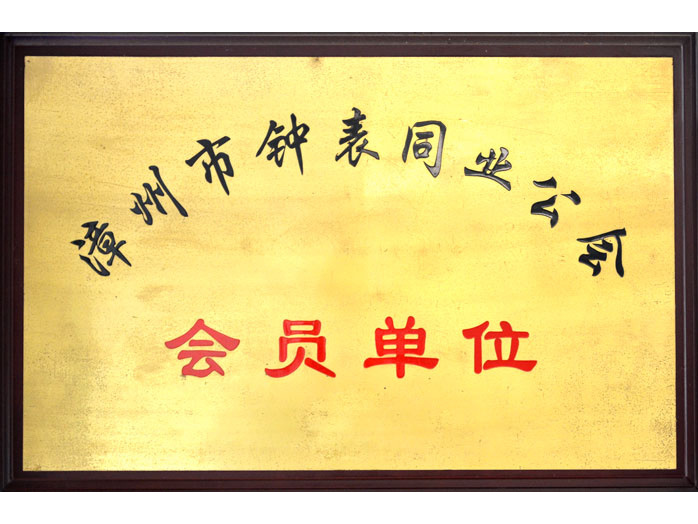 漳州市钟表同业公会
会员单位